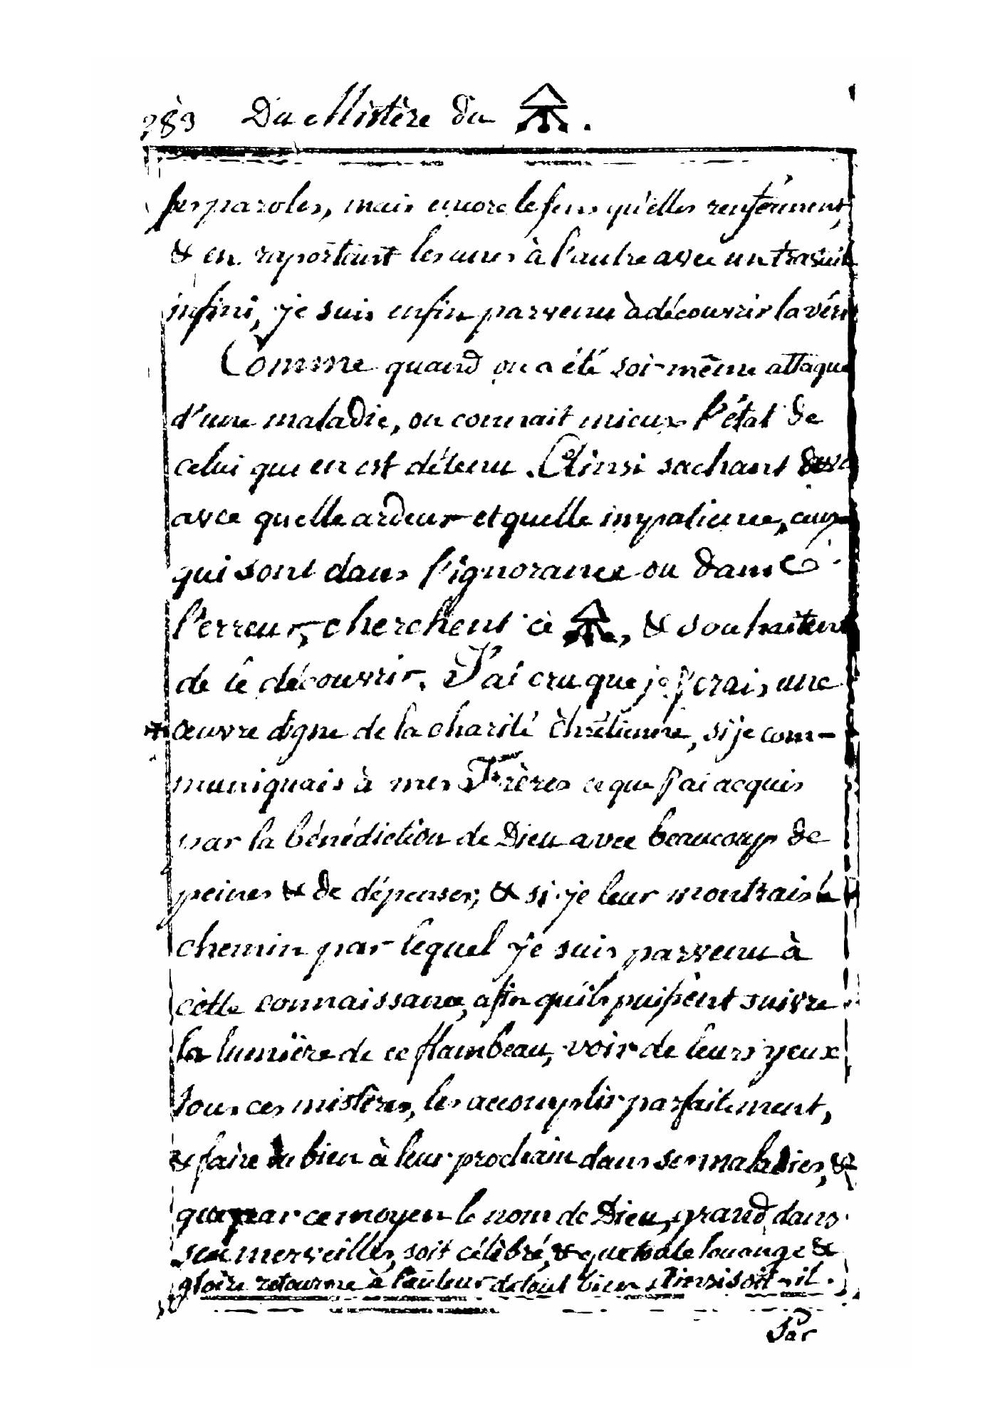 283 Du Mistère du 🜍.
ses paroles, mais encore le sens qu'elles renferment,
& en raportant les unes à l'autre avec un travail
infini, je suis enfin parvenu à découvrir la véri
Comme quand on a été soi-même attaqué
d'une maladie, on connait mieux l'état de
celui qui en est détenu. Ainsi sachant
avec quelle ardeur et quelle impatience, ceux
qui sont dans l'ignorance ou dans
l'erreur, cherchent ce 🜍, & souhaitent
de le découvrir. J'ai cru que je ferais une
œuvre digne de la charité chrêtienne, si je com-
muniquais à mes Frères ce que j'ai acquis
par la bénédiction de Dieu avec beaucoup de
peines & de dépenses; & si je leur montrais le
chemin par lequel je suis parvenu à
cette connaissance, afin qu'ils puissent suivre
la lumière de ce flambeau, voir de leurs yeux
tous ces mistères, les accomplir parfaitement,
& faire du bien à leur prochain dans ses maladies, &
que par ce moyen le nom de Dieu, grand dans
ses merveilles, soit célébré, & que toute louange &
gloire retourne à l'auteur de tout bien. Ainsi soit-il.
Par